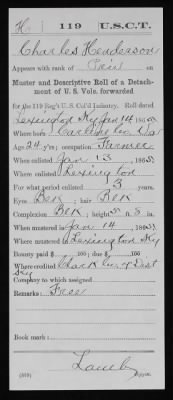 H | 119 | U.S.C.T.
Charles Henderson
Appears with rank of Priv on
Muster and Descriptive Roll of a Detach-
ment of U. S. Vols. forwarded
for the 119 Reg't U.S. Col'd Infantry. Roll dated
Lexington Ky Jan 14, 1865.
Where born Co., Va
Age 24 y'rs; occupation Farmer
When enlisted Jan 13, 1865.
Where enlisted Lexington
For what period enlisted 3 years.
Eyes Blk; hair Blk
Complexion Blk; height 5 ft. 8 in.
When mustered in Jan 14, 1865.
Where mustered in Lexington Ky
Bounty paid $ 100; due $ 100
Where credited Clark Co., 7 Dist
Ky
Company to which assigned
Remarks: Free
Book mark:
(339) Copyist.